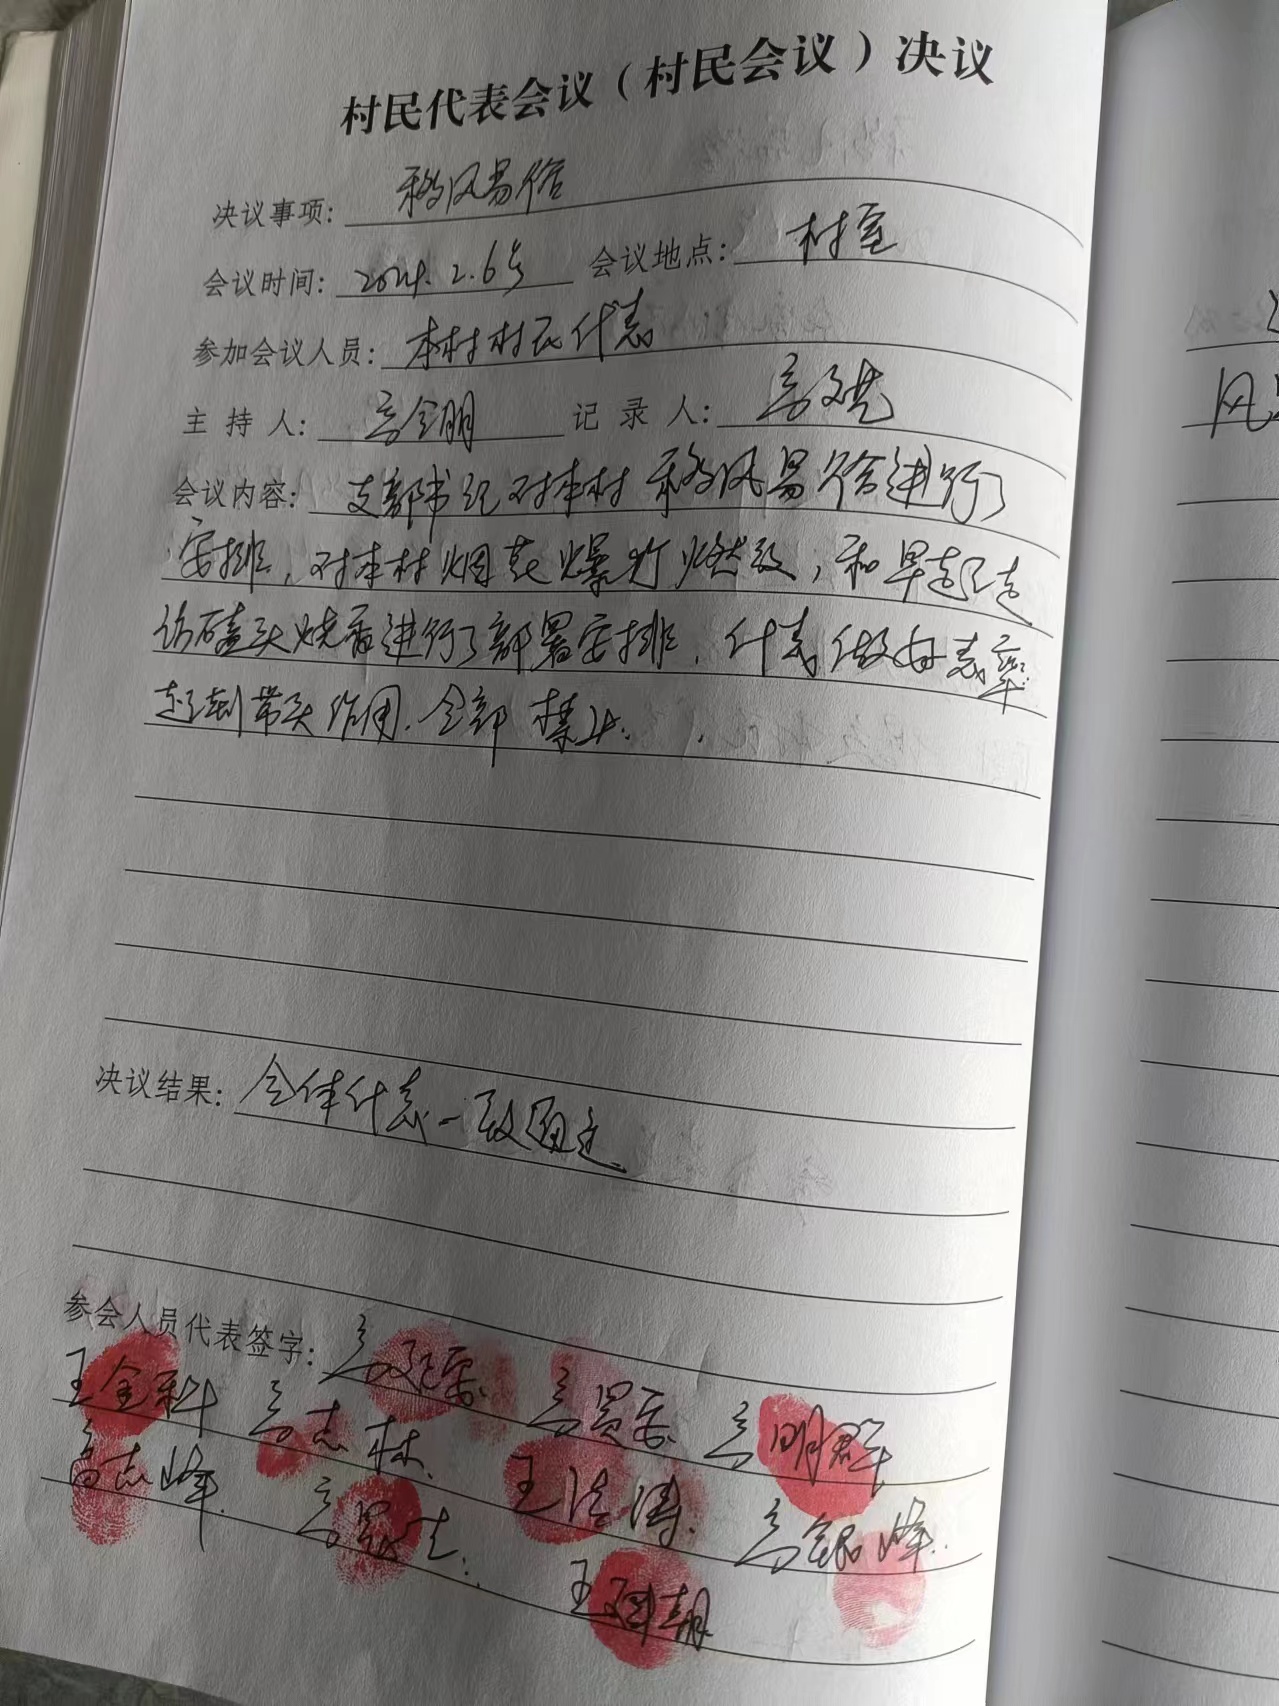 村民代表会议（村民会议）决议
决议事项: 移风易俗
会议时间: 2024.2.6号 会议地点: 村室
参加会议人员: 本村村民代表
主持人: 高全朋 记录人: 高
会议内容: 支部书记对本村移风易俗进行了
安排，对本村烟花爆竹燃放，和早起走
访磕头烧香进行了部署安排，代表做好表率
起到带头作用.全部禁止.
决议结果: 全体代表一致通过
参会人员代表签字: 高 高贯 高明群
王金科 高志林. 王洪涛. 高银峰.
高志峰. 高 生. 王 朝
风